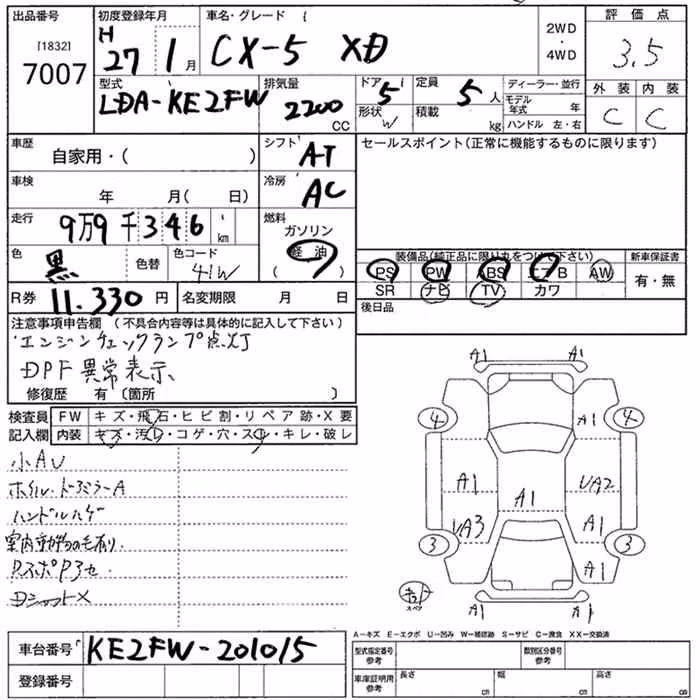 出品番号 初度登録年月 車名・グレード 2WD・4WD 評価点
[1832]
7007 H 27年 1月 CX-5 XD 3.5
型式 排気量 ドア 定員 ディーラー・並行 外装 内装
LDA-KE2FW 2200 CC 5 形状 W 5人 積載 kg モデル年式 年 ハンドル 左・右 C C
車歴 自家用・( ) シフト AT セールスポイント(正常に機能するものに限ります)
車検 年 月( 日) 冷房 AC
走行 9万9千346 km 燃料 ガソリン 軽油 ( )
色 黒 色替 色コード 41W
装備品(純正品に限り丸をつけて下さい) 新車保証書
PS PW ABS エアB AW 有・無
SR ナビ TV カワ
R券 11.330円 名変期限 月 日 後日品
注意事項申告欄 (不具合内容等は具体的に記入して下さい)
エンジンチェックランプ点灯
DPF異常表示、
修復歴 有 〔箇所 〕
検査員 FW キズ・飛石・ヒビ割・リペア跡・X要
記入欄 内装 キズ・汚レ・コゲ・穴・スレ・キレ・破レ
小AU
ホイル・ドアミラーA
ハンドルハゲ
A1 A1
4 A1 4
A1 A1 UA2
UA3 A1
3 3
A1
スペア A1 A1
A−キズ E−エクボ U−凹み W−補修跡 S−サビ C−腐食 XX−交換済
車台番号 KE2FW-201015 型式指定番号 参考 類別区分番号 参考
登録番号 車庫証明用 参考 長さ cm 幅 cm 高さ cm